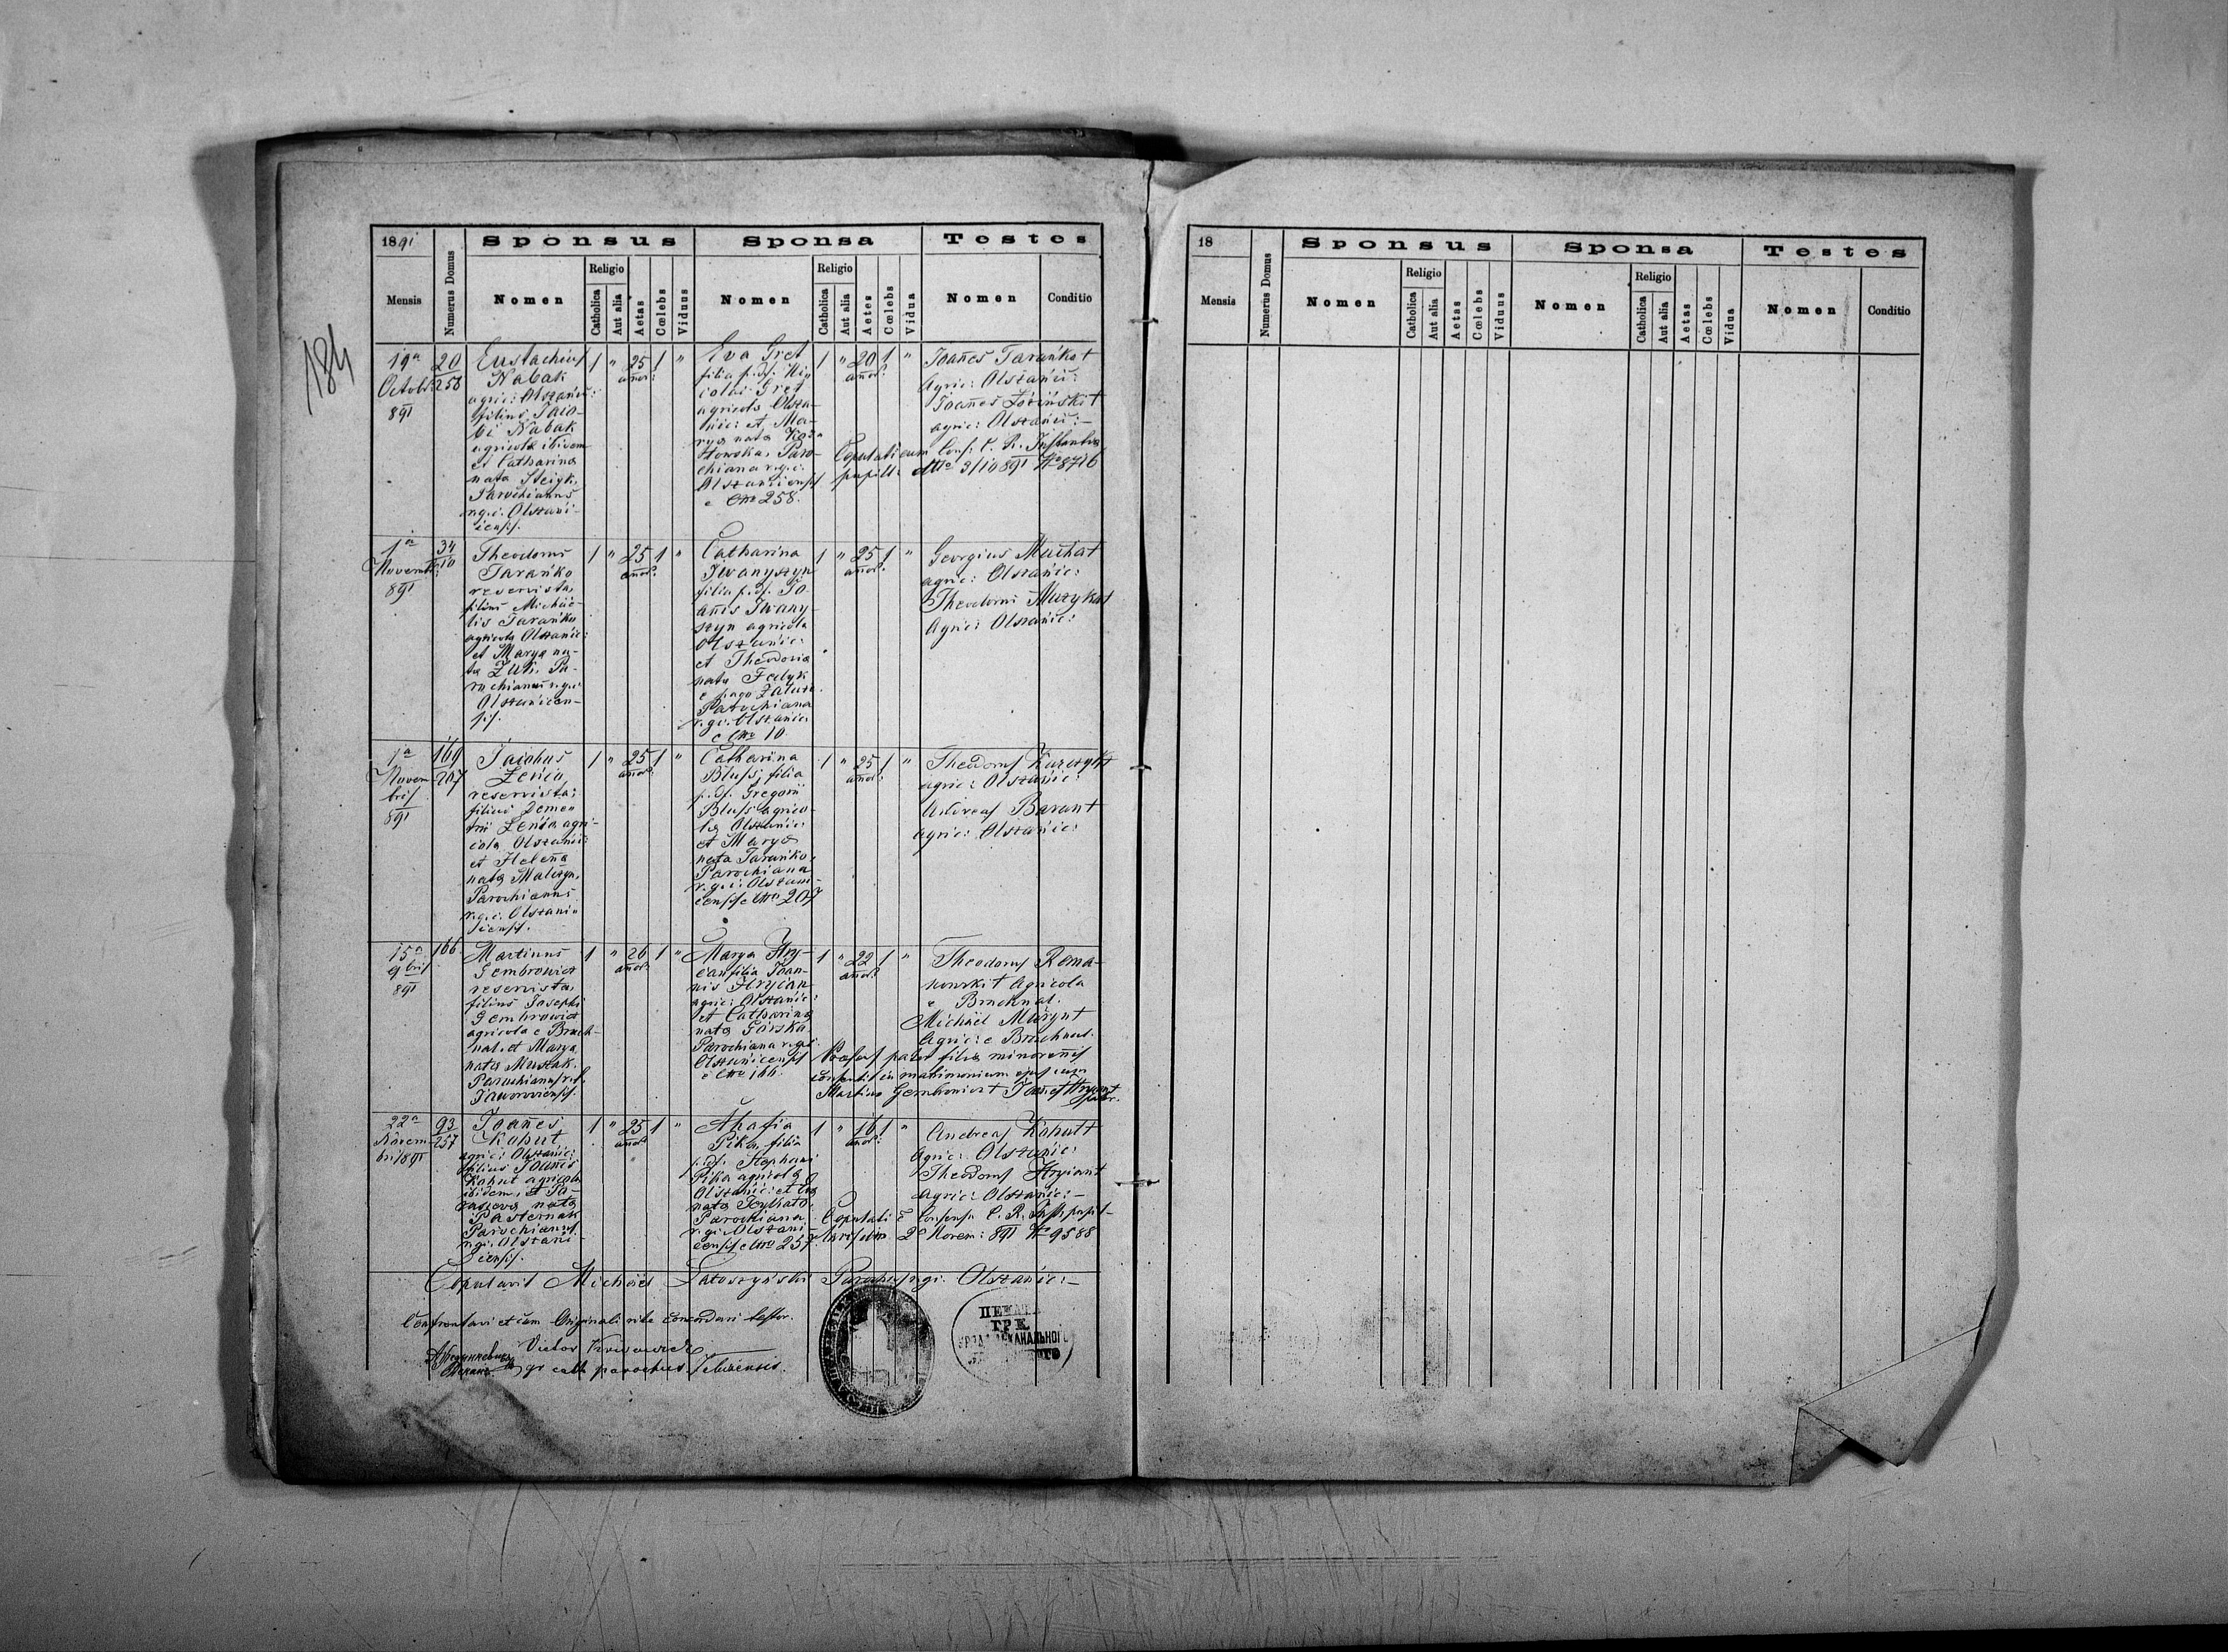 184
1891
Sponsus
Sponsa
Testes
Mensis
Numerus Domus
Nomen
Religio
Catholica
Aut alia
Aetas
Cœlebs
Viduus
Nomen
Religio
Catholica
Aut alia
Aetas
Cœlebs
Vidua
Nomen
Conditio
19a
Octob:
891
20
258
Eustachius
Nabak
agric: Olszanic:
filius Jaco-
bi Nabak
agricola ibidem
et Catharina
nata
Parochianus
r.g.c. Olszani-
censis.
1 " 25 1 "
annor:
Eva Gret
filia p.d. Ni-
colai Gret
agricola Olsza-
nic: et Ma-
rya nata
Paro-
chiana r.g.c.
Olszanicensis
e Nro 258.
1 " 20 1 "
annor:
Joañes Tarańko +
Agric: Olszanic:
Joañes Łoziński +
agric: Olszanic:-
Copulati cum Cons: C. R.
pupill: dtto 3/10 891 No 8716
1a
Novemb:
891
34
10
Theodorus
Tarańko
reservista,
filius Michae-
lis Tarańko
agricola Olszanic:
et Marya na-
ta Żuk. Pa-
rochianus r.g.c.
Olszanicen-
sis.
1 " 25 1 "
annor:
Catharina
Iwanyszyn
filia p.d. Jo-
anis Iwany-
szyn agricola
Olszanic:
et Theodosia
nata Fedyk
e pago
Parochiana
r.g.c. Olszanic:
e Nro 10
1 " 25 1 "
annor:
Georgius Macha +
agric: Olszanic:
Theodorus Muzyka +
Agric: Olszanic:
1a
Novem-
bris
891
169
207
Jacobus
Zenia
reservista,
filius Deme-
trii Zenia agri-
cola Olszanic:
et Helena
nata
Parochianus
r.g.c. Olszani-
censis.
1 " 25 1 "
annor:
Catharina
Bluss, filia
p.d. Gregorii
Bluss agrico-
la Olszanic:
et Marya
nata Tarańko,
Parochiana
r.g.c. Olszani-
censis e Nro 207
1 " 25 1 "
annor:
Theodorus
agric: Olszanic:
Andreas Baran +
agric: Olszanic:
15a
9bris
891
166
Martinus
Gembrowicz
reservista,
filius Josephi
Gembrowicz
agricola e Bruch-
nal. et Marya
nata Muszak.
Parochianus r.l.
Jaworoviensis.
1 " 26 1 "
annor:
Marya Hry-
can filia Joan-
nis Hrycan
agric: Olszanic:
et Catharina
nata Górska
Parochiana r.g.c.
Olszanicensis
e Nro 166.
1 " 22 1 "
annor:
Theodorus Roma-
nowski + Agricola
e Bruchnal.
Michael Muzyn +
Agric: e Bruchnal.
pater filia minorenis
consentit in matrimonium ejus cum
Martino Gembrowicz + Joañes Hrycan +
pater.
22a
Novem-
bris 891
93
257
Joañes
Kohut
agric: Olszanic:
filius Joañis
Kohut agricola
ibidem, et Pa-
nata
Pasternak
Parochianus
r.g.c. Olszani-
censis.
1 " 25 1 "
annor:
Ahafia
Pika, filia
p.d. Stephani
Pika agricola
Olszanic: et Eva
nata
Parochiana
r.g.c. Olszani-
censis e Nro 257.
1 " 16 1 "
annor:
Andreas Kohut +
Agric: Olszanic:
Theodorus Hrycan +
Agric: Olszanic:-
Copulati e Consensu C. R.
2e Novem: 891 No 9588
Copulavit Michael Latoszyński Parochus r.g.c. Olszanic:-
Confrontavi et cum Originali rite concordari testor.
Victor
gr cath parochus
ГР. К.
18
Sponsus
Sponsa
Testes
Mensis
Numerus Domus
Nomen
Religio
Catholica
Aut alia
Aetas
Cœlebs
Viduus
Nomen
Religio
Catholica
Aut alia
Aetas
Cœlebs
Vidua
Nomen
Conditio